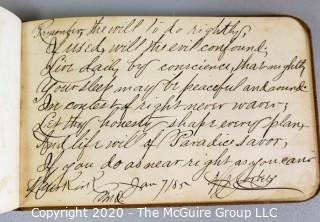 Remember, the will to do rightly,
If used, will the evil confound,
Live daily by conscience, that nightly
Your sleep may be peaceful and sound.
In contest of right never waver;
Let thy honesty shape every plan,
And life will of Paradise savor,
If you do as near right as you can.
Jan 7/85
Copyright © 2020 - The McGuire Group, LLC